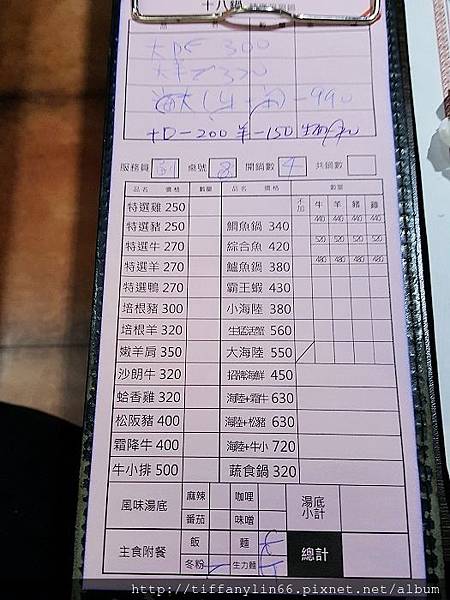 十八鍋
300
370
-990
+D-200 羊-150
服務員 桌號 8 開鍋數 4 共鍋數
品名 價格 數量 品名 價格 數量
不加 牛 羊 豬 雞
特選雞 250
特選豬 250 鯛魚鍋 340 440 440 440 440
特選牛 270 綜合魚 420 520 520 520 520
特選羊 270 鱸魚鍋 380 480 480 480 480
特選鴨 270 霸王蝦 430
培根豬 300 小海陸 380
培根羊 320 生猛活蟹 560
嫩羊肩 350 大海陸 550
沙朗牛 320 招牌海鮮 450
蛤香雞 320 海陸+霜牛 630
松阪豬 400 海陸+松豬 630
霜降牛 400 海陸+牛小 720
牛小排 500 蔬食鍋 320
風味湯底 麻辣 咖哩 湯底小計
番茄 味噌
主食附餐 飯 麵 總計
冬粉 生力麵
http://tiffanylin66.pixnet.net/album